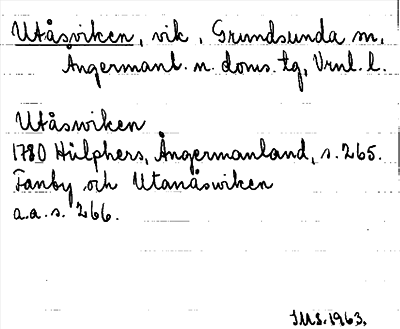 Utåsviken, vik, Grundsunda sn,
Ångermanl. n. doms. tg, Vrnl. l.
Utåswiken
1780 Hülphers, Ångermanland, s. 265.
Fanby och Utanåswiken
a.a. s. 266.
IMS. 1963.